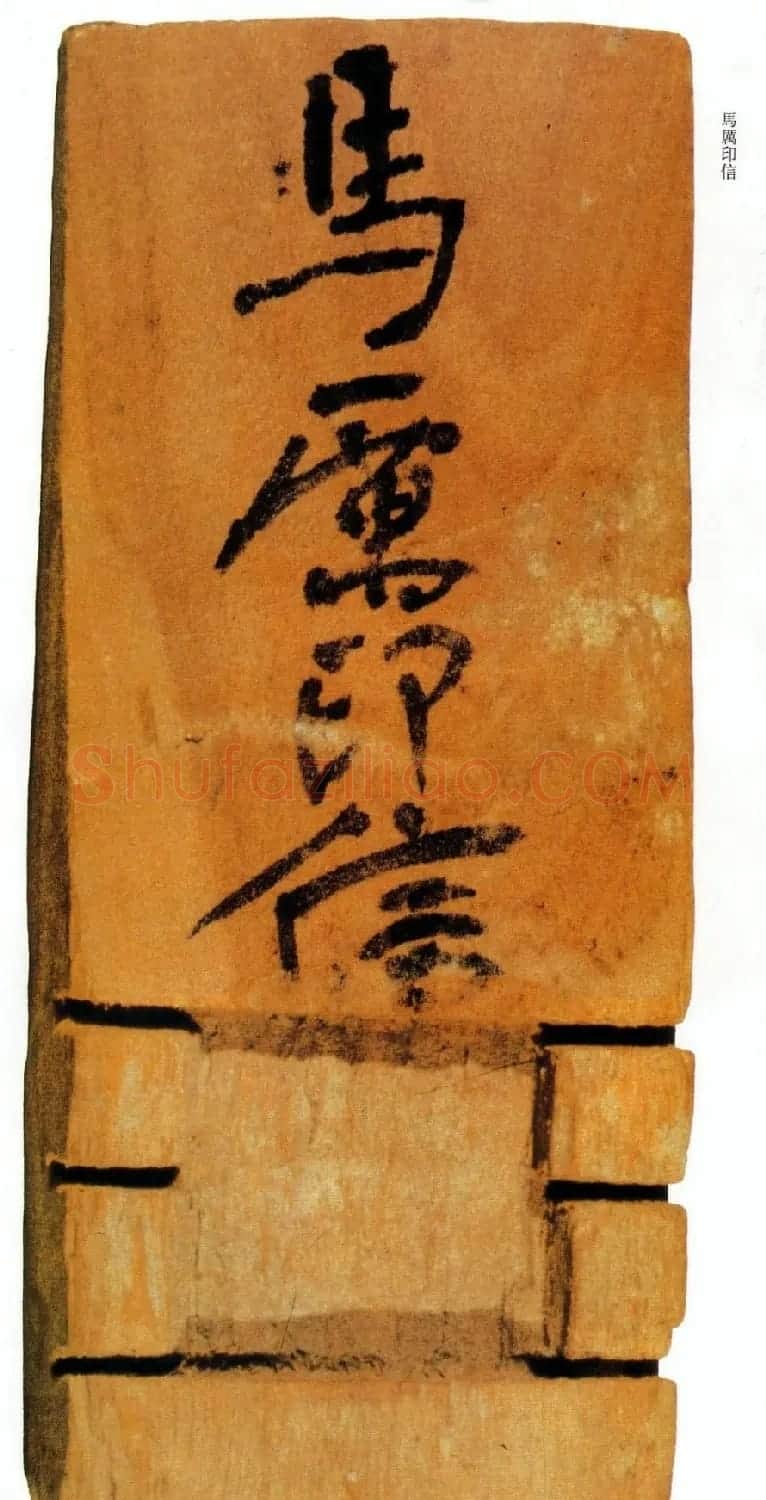 馬厲印信
馬厲印信
Shufaziliao.COM